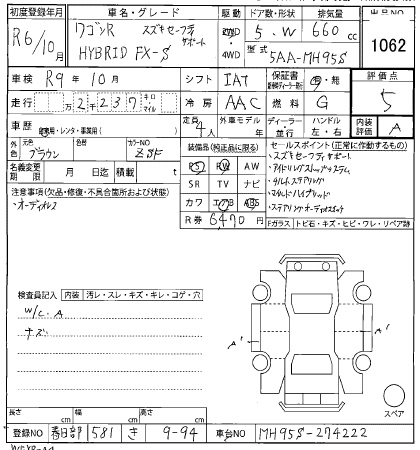 初度登録年月 車名・グレード 駆動 ドア数・形状 排気量 出品NO
R6/10月 ワゴンR スズキセーフティサポート 2WD 4WD 5・W 660cc 1062
HYBRID FX-S 型式 5AA-MH95S
車検 R9年10月 シフト IAT 保証書 有・無 評価点
走行 万2千237 キロ・マイル 冷房 AAC 燃料 G 5
車歴 自家用・レンタ・事業用( ) 定員 4人 外車モデル 年 ディーラー・並行 ハンドル 左・右 内装評価 A
外色 元色 ブラウン 色 カラーNO ZSF 装備品(純正品に限る) セールスポイント(正常に作動するもの)
名義変更期限 月 日迄 積載 t PS PW AW
SR TV ナビ
カワ エアB ABS
R券 6470円
・スズキセーフティサポート
・アイドリングストップシステム
・チルトステアリング
・マイルドハイブリッド
・ステアリングオーディオスイッチ
注意事項(欠品・修復・不具合箇所および状態)
・オーディオレス
Fガラス トビ石・キズ・ヒビ・ワレ・リペア跡
検査員記入 内装 汚レ・スレ・キズ・キレ・コゲ・穴
W/C.A
キズ
A' A'
スペア
長さ cm 幅 cm 高さ cm
登録NO 春日部 581 き 9-94 車台NO MH95S-274222